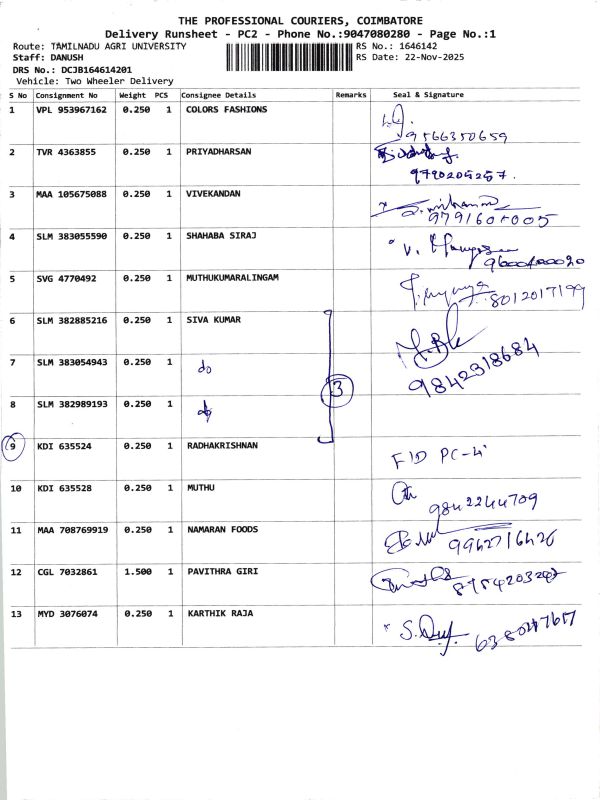 THE PROFESSIONAL COURIERS, COIMBATORE
Delivery Runsheet - PC2 - Phone No.:9047080280 - Page No.:1
Route: TAMILNADU AGRI UNIVERSITY RS No.: 1646142
Staff: DANUSH RS Date: 22-Nov-2025
DRS No.: DCJB164614201
Vehicle: Two Wheeler Delivery
S No Consignment No Weight PCS Consignee Details Remarks Seal & Signature
1 VPL 953967162 0.250 1 COLORS FASHIONS
9566350659
2 TVR 4363855 0.250 1 PRIYADHARSAN
9790205257.
3 MAA 105675088 0.250 1 VIVEKANDAN
9791605005
4 SLM 383055590 0.250 1 SHAHABA SIRAJ
5 SVG 4770492 0.250 1 MUTHUKUMARALINGAM
8012017199
6 SLM 382885216 0.250 1 SIVA KUMAR
7 SLM 383054943 0.250 1 do
9842318684
3
8 SLM 382989193 0.250 1 do
9 KDI 635524 0.250 1 RADHAKRISHNAN
F/D PC-4
10 KDI 635528 0.250 1 MUTHU
9842244709
11 MAA 708769919 0.250 1 NAMARAN FOODS
9942716426
12 CGL 7032861 1.500 1 PAVITHRA GIRI
13 MYD 3076074 0.250 1 KARTHIK RAJA